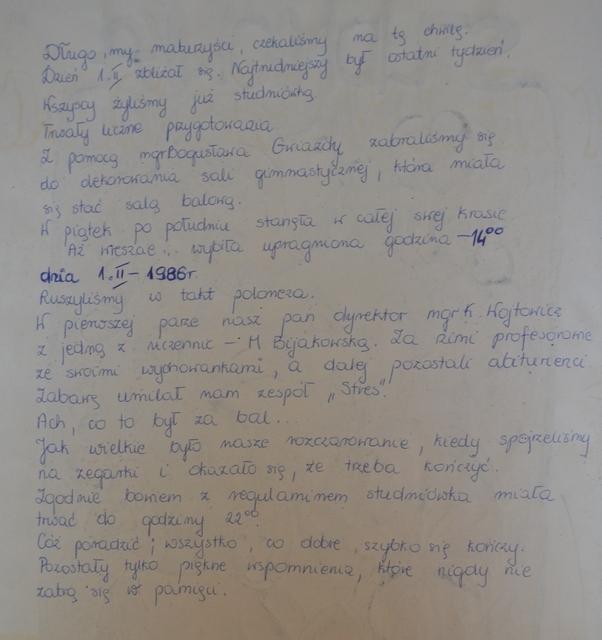 Długo, my - maturzyści, czekaliśmy na tę chwilę.
Dzień 1.II zbliżał się. Najtrudniejszy był ostatni tydzień.
Wszyscy żyliśmy już studniówką.
Trwały liczne przygotowania.
Z pomocą mgr Bogusława Gwiazdy zabraliśmy się
do dekorowania sali gimnastycznej, która miała
się stać salą balową.
W piątek po południu stanęła w całej swej krasie
Aż wreszcie... wybiła upragniona godzina - 14⁰⁰
dnia 1.II - 1986r.
Ruszyliśmy w takt poloneza.
W pierwszej parze nasz pan dyrektor mgr K. Wojtowicz
z jedną z uczennic - M Bijakowską. Za nimi profesorowie
ze swoimi wychowankami, a dalej pozostali abiturienci
Zabawę umilał nam zespół „Stres".
Ach, co to był za bal...
Jak wielkie było nasze rozczarowanie, kiedy spojrzeliśmy
na zegarki i okazało się, że trzeba kończyć.
Zgodnie bowiem z regulaminem studniówka miała
trwać do godziny 22⁰⁰.
Cóż poradzić; wszystko, co dobre, szybko się kończy.
Pozostały tylko piękne wspomnienia, które nigdy nie
zatrą się w pamięci.